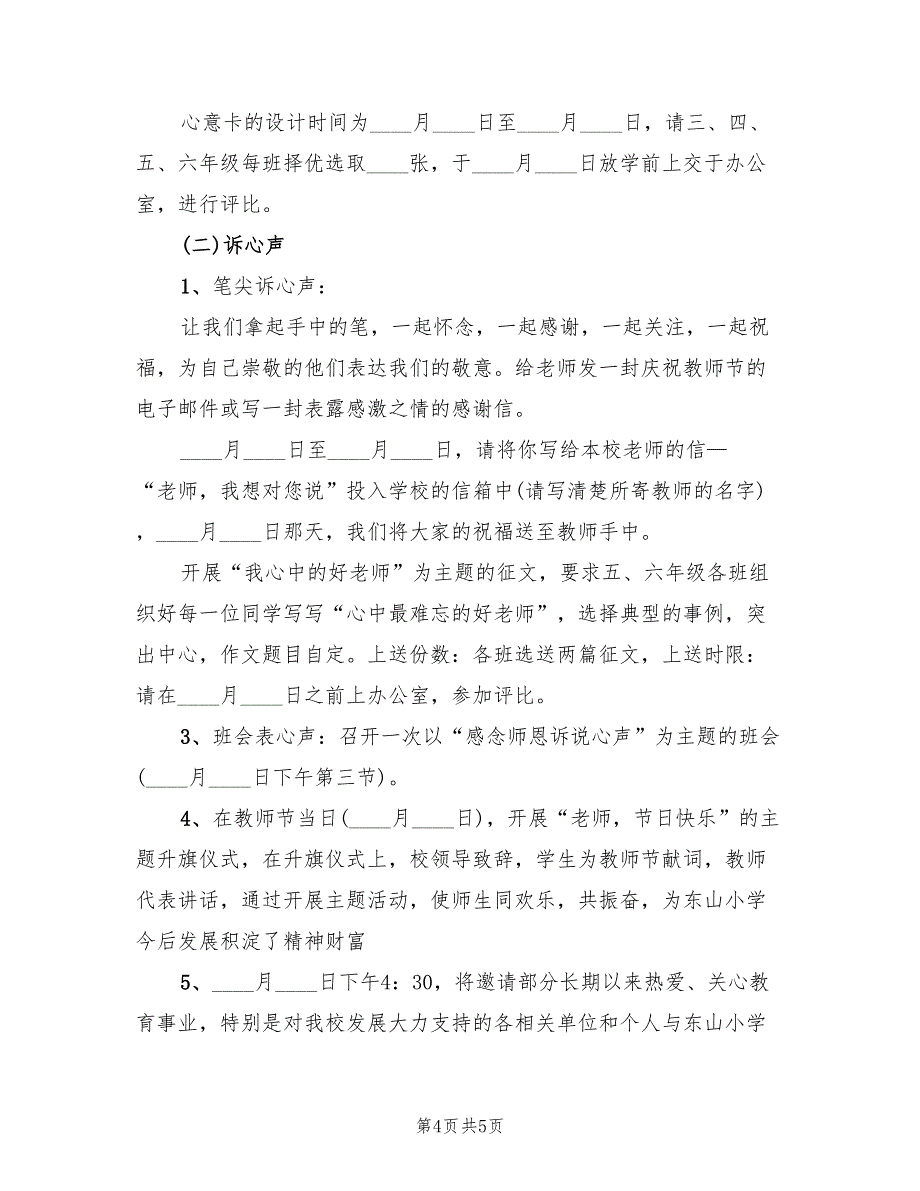 心意卡的设计时间为____月____日至____月____日，请三、四、
五、六年级每班择优选取____张，于____月____日放学前上交于办公
室，进行评比。
(二)诉心声
1、笔尖诉心声：
让我们拿起手中的笔，一起怀念，一起感谢，一起关注，一起祝
福，为自己崇敬的他们表达我们的敬意。给老师发一封庆祝教师节的
电子邮件或写一封表露感激之情的感谢信。
____月____日至____月____日，请将你写给本校老师的信—
“老师，我想对您说”投入学校的信箱中(请写清楚所寄教师的名字)
，____月____日那天，我们将大家的祝福送至教师手中。
开展“我心中的好老师”为主题的征文，要求五、六年级各班组
织好每一位同学写写“心中最难忘的好老师”，选择典型的事例，突
出中心，作文题目自定。上送份数：各班选送两篇征文，上送时限：
请在____月____日之前上办公室，参加评比。
3、班会表心声：召开一次以“感念师恩诉说心声”为主题的班会
(____月____日下午第三节)。
4、在教师节当日(____月____日)，开展“老师，节日快乐”的主
题升旗仪式，在升旗仪式上，校领导致辞，学生为教师节献词，教师
代表讲话，通过开展主题活动，使师生同欢乐，共振奋，为东山小学
今后发展积淀了精神财富
5、____月____日下午4：30，将邀请部分长期以来热爱、关心教
育事业，特别是对我校发展大力支持的各相关单位和个人与东山小学
第4页共5页